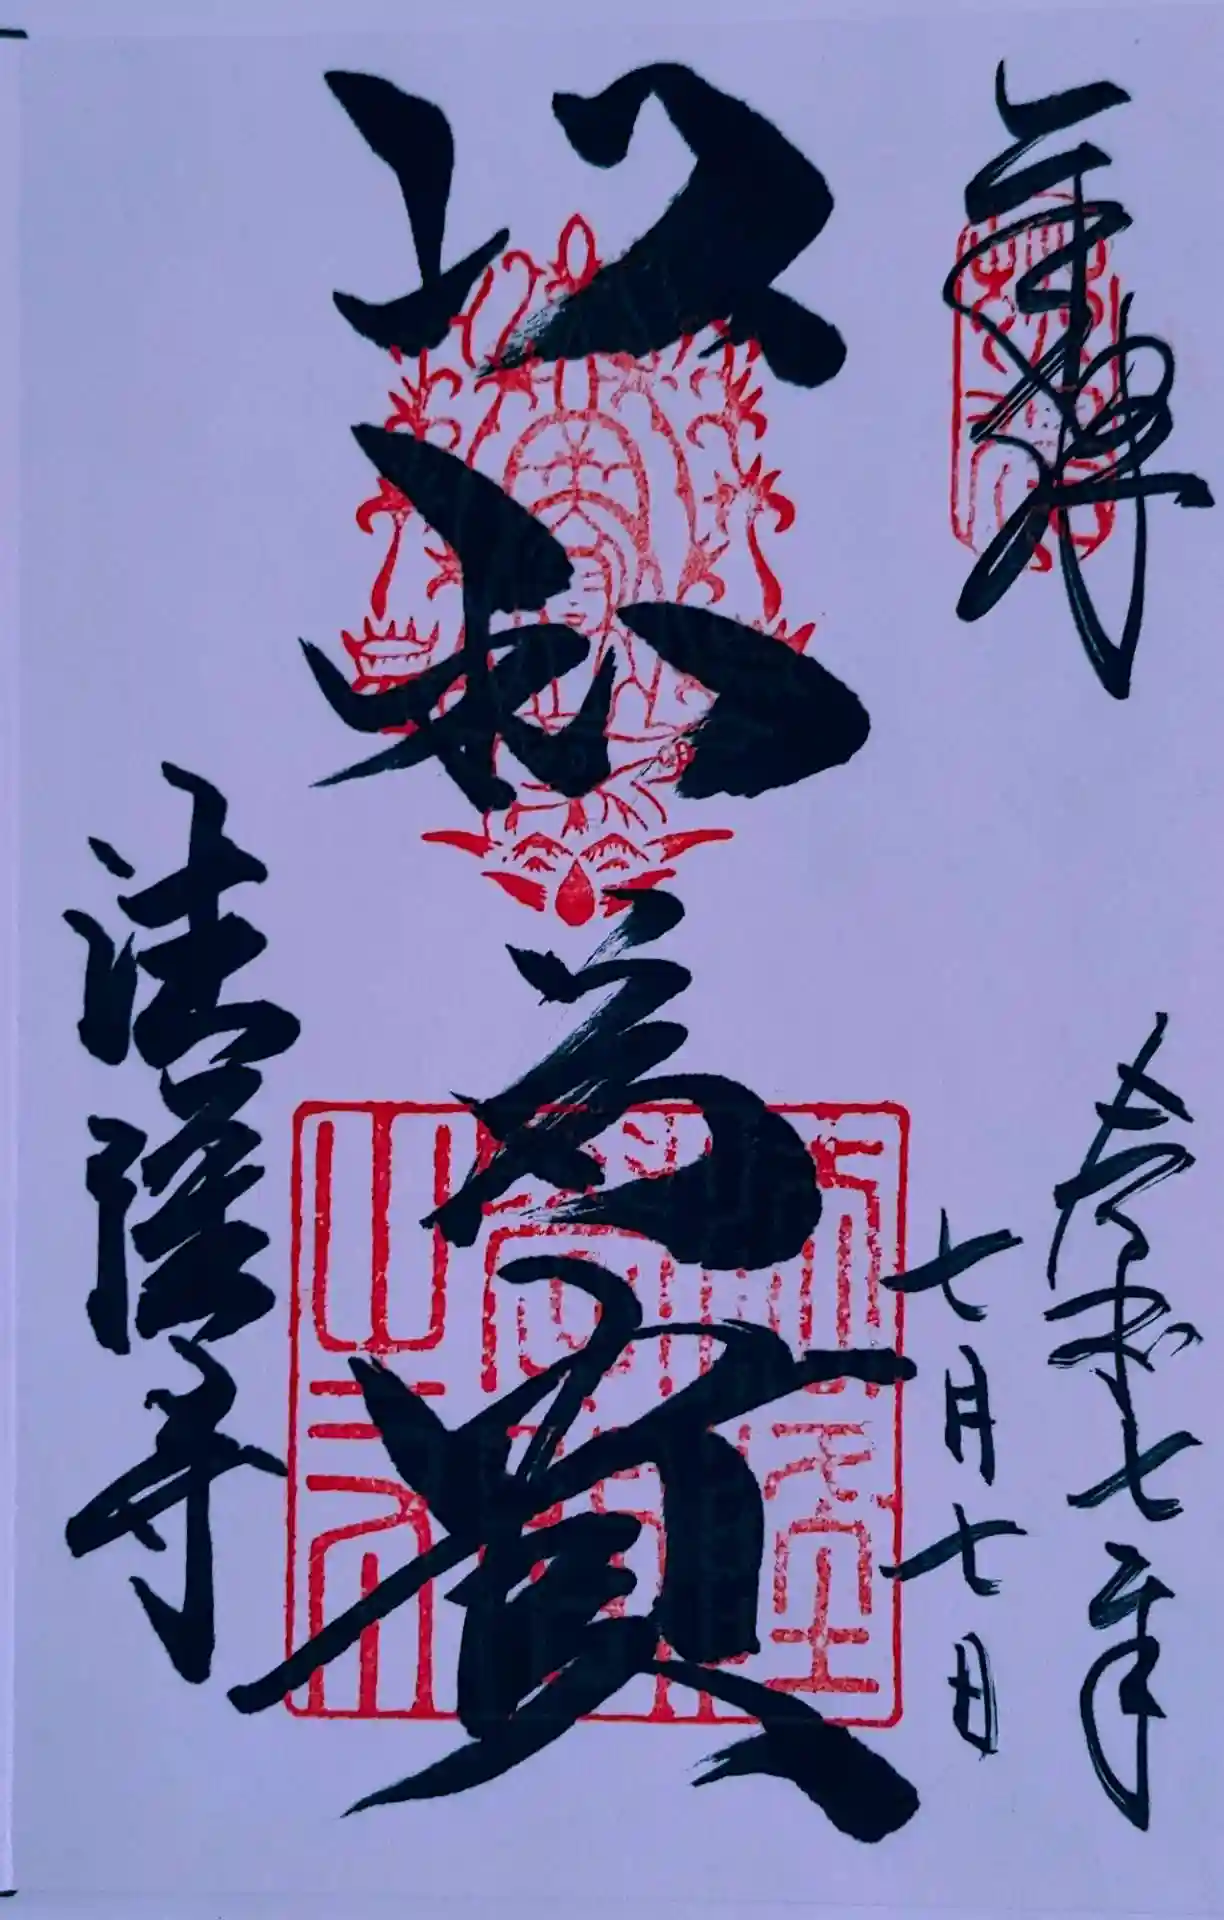 奉拝
令和七年
七月七日
以和為貴
法隆寺